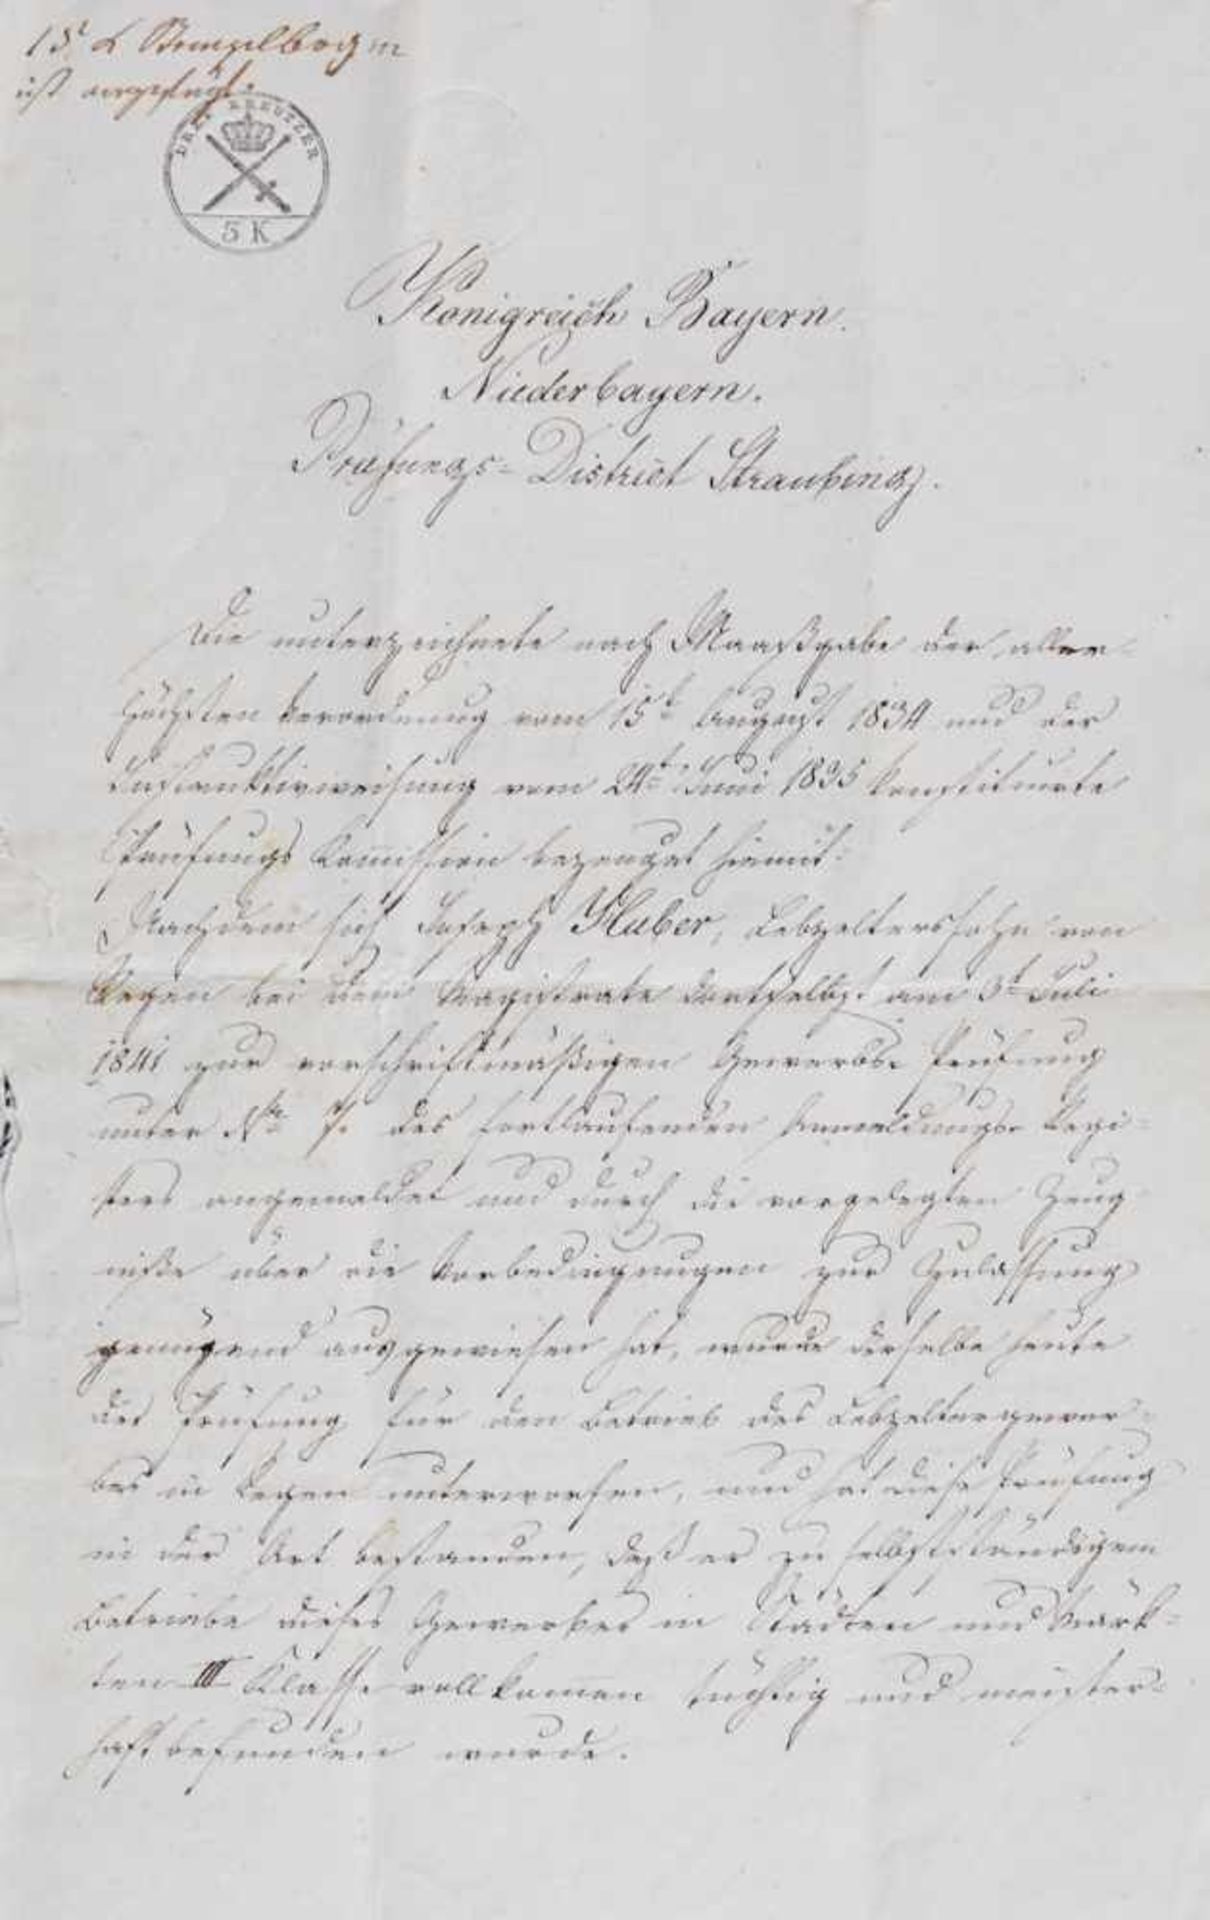 15 x Stempelbogen
ist angefügt.
DREI KREUZER
5 K
Königreich Bayern.
Niederbayern.
Prüfungs-District Straubing.
Die unterzeichnete nach Maasßgabe der aller-
höchsten Verordnung vom 15t August 1834 und der
vom 24t Juni 1835 konstituirte
Prüfungs Kommission bezeuget hiemit:
Nachdem sich Joseph Huber, Lebzelterssohn von
Regen bei dem Magistrate dortselbst am 3t Juli
1841 zur vorschriftmäßigen Gewerbs-Prüfung
unter Nro 7. des fortlaufenden Anmeldungs-Regi-
sters angemeldet und durch die vorgelegten Zeug-
niße über die Vorbedingungen zur Zulassung
genügend ausgewiesen hat, wurde derselbe heute
der Prüfung für den Betrieb des Lebzeltergewer-
bes in Regen unterworfen, und hat diese Prüfung
in der Art bestanden, daß er zu selbstständigem
Betriebe dieses Gewerbes in Städten und Märk-
ten III Klasse vollkomen tüchtig und meister-
haft befunden wurde.